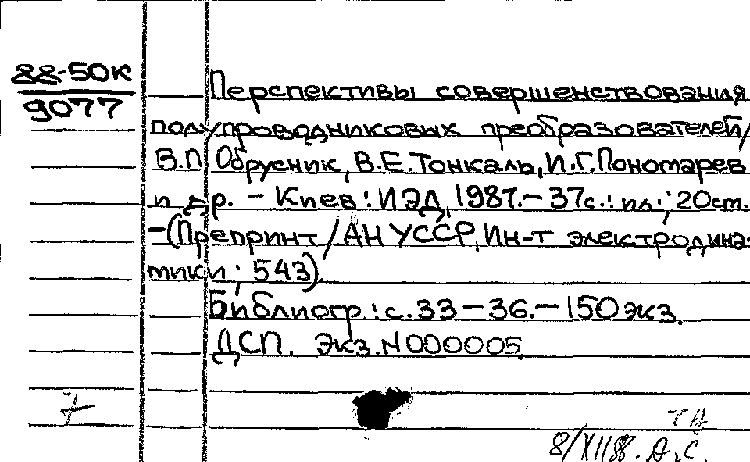 88-50к
9077
Перспективы совершенствования
полупроводниковых преобразователей/
В.П. Обрусник, В.Е. Тонкаль, И.Г. Пономарев
и др. - Киев: ИЭД, 1987. - 37с.: ил.; 20см.
-(Препринт/АН УССР, Ин-т электродина-
мики; 543)
Библиогр.: с.33-36. - 150 экз.
ДСП. Экз. N000005.
8/XII88. А.С.